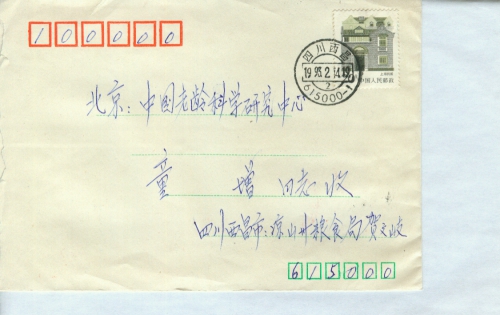 100000
四川西昌
1993.2.14.18
2
615000-1
上海民居
中国人民邮政
北京：中国老龄科学研究中心
童增同志收
四川西昌市凉山州粮食局贺
615000